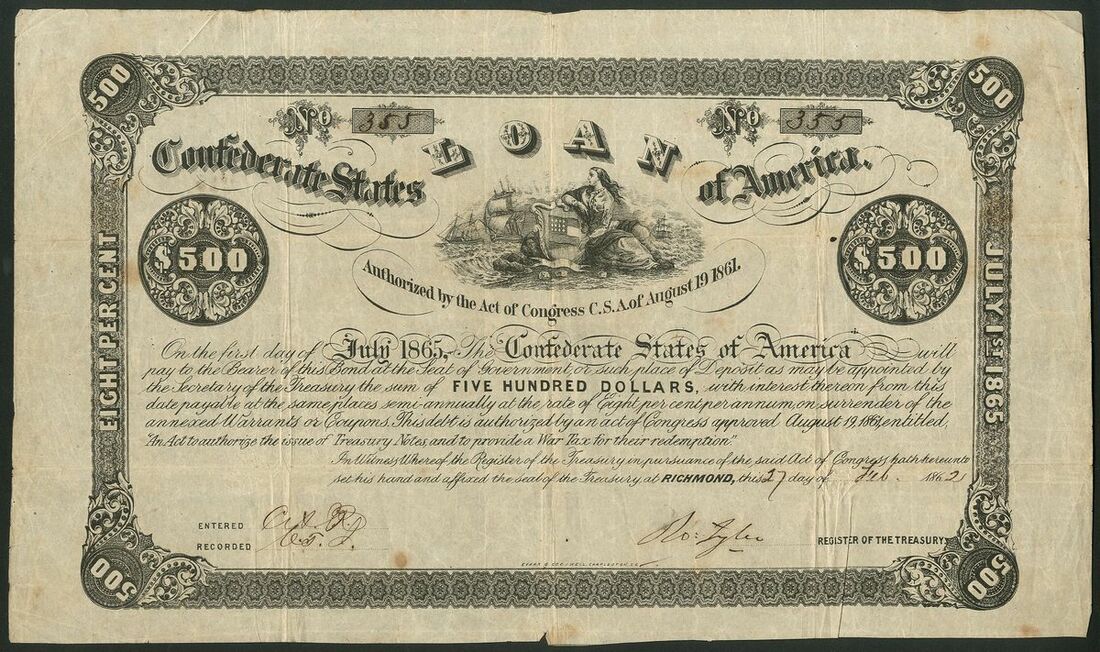 500
500
No 355
LOAN
No 355
Confederate States
of America.
$500
$500
Authorized by the Act of Congress C.S.A. of August 19 1861.
EIGHT PER CENT
JULY 1ST 1865
On the first day of July 1865, The Confederate States of America will
pay to the Bearer of this Bond at the Seat of Government or such place of Deposit as may be appointed by
the Secretary of the Treasury the sum of FIVE HUNDRED DOLLARS, with interest thereon from this
date payable at the same places semi-annually at the rate of Eight per cent per annum, on surrender of the
annexed Warrants or Coupons. This debt is authorized by an act of Congress approved August 19, 1861, entitled,
"An Act to authorize the issue of Treasury Notes, and to provide a War Tax for their redemption."
In Witness Whereof, the Register of the Treasury, in pursuance of the said Act of Congress, hath hereunto
set his hand and affixed the seal of the Treasury, at RICHMOND, this 27 day of Feb. 1862
ENTERED
RECORDED
Ro: Tyler REGISTER OF THE TREASURY
EVANS & COGSWELL, CHARLESTON, S.C.
500
500